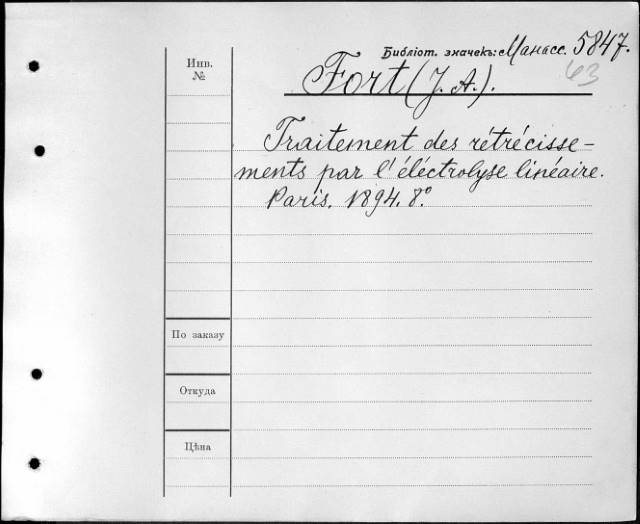 Библіот. значекъ: Манасс. 5847.
63
Инв.
№
Fort (J. A.).
Traitement des rétrécisse-
ments par l'éléctrolyse linéaire.
Paris. 1894. 8°.
По заказу
Откуда
Цѣна